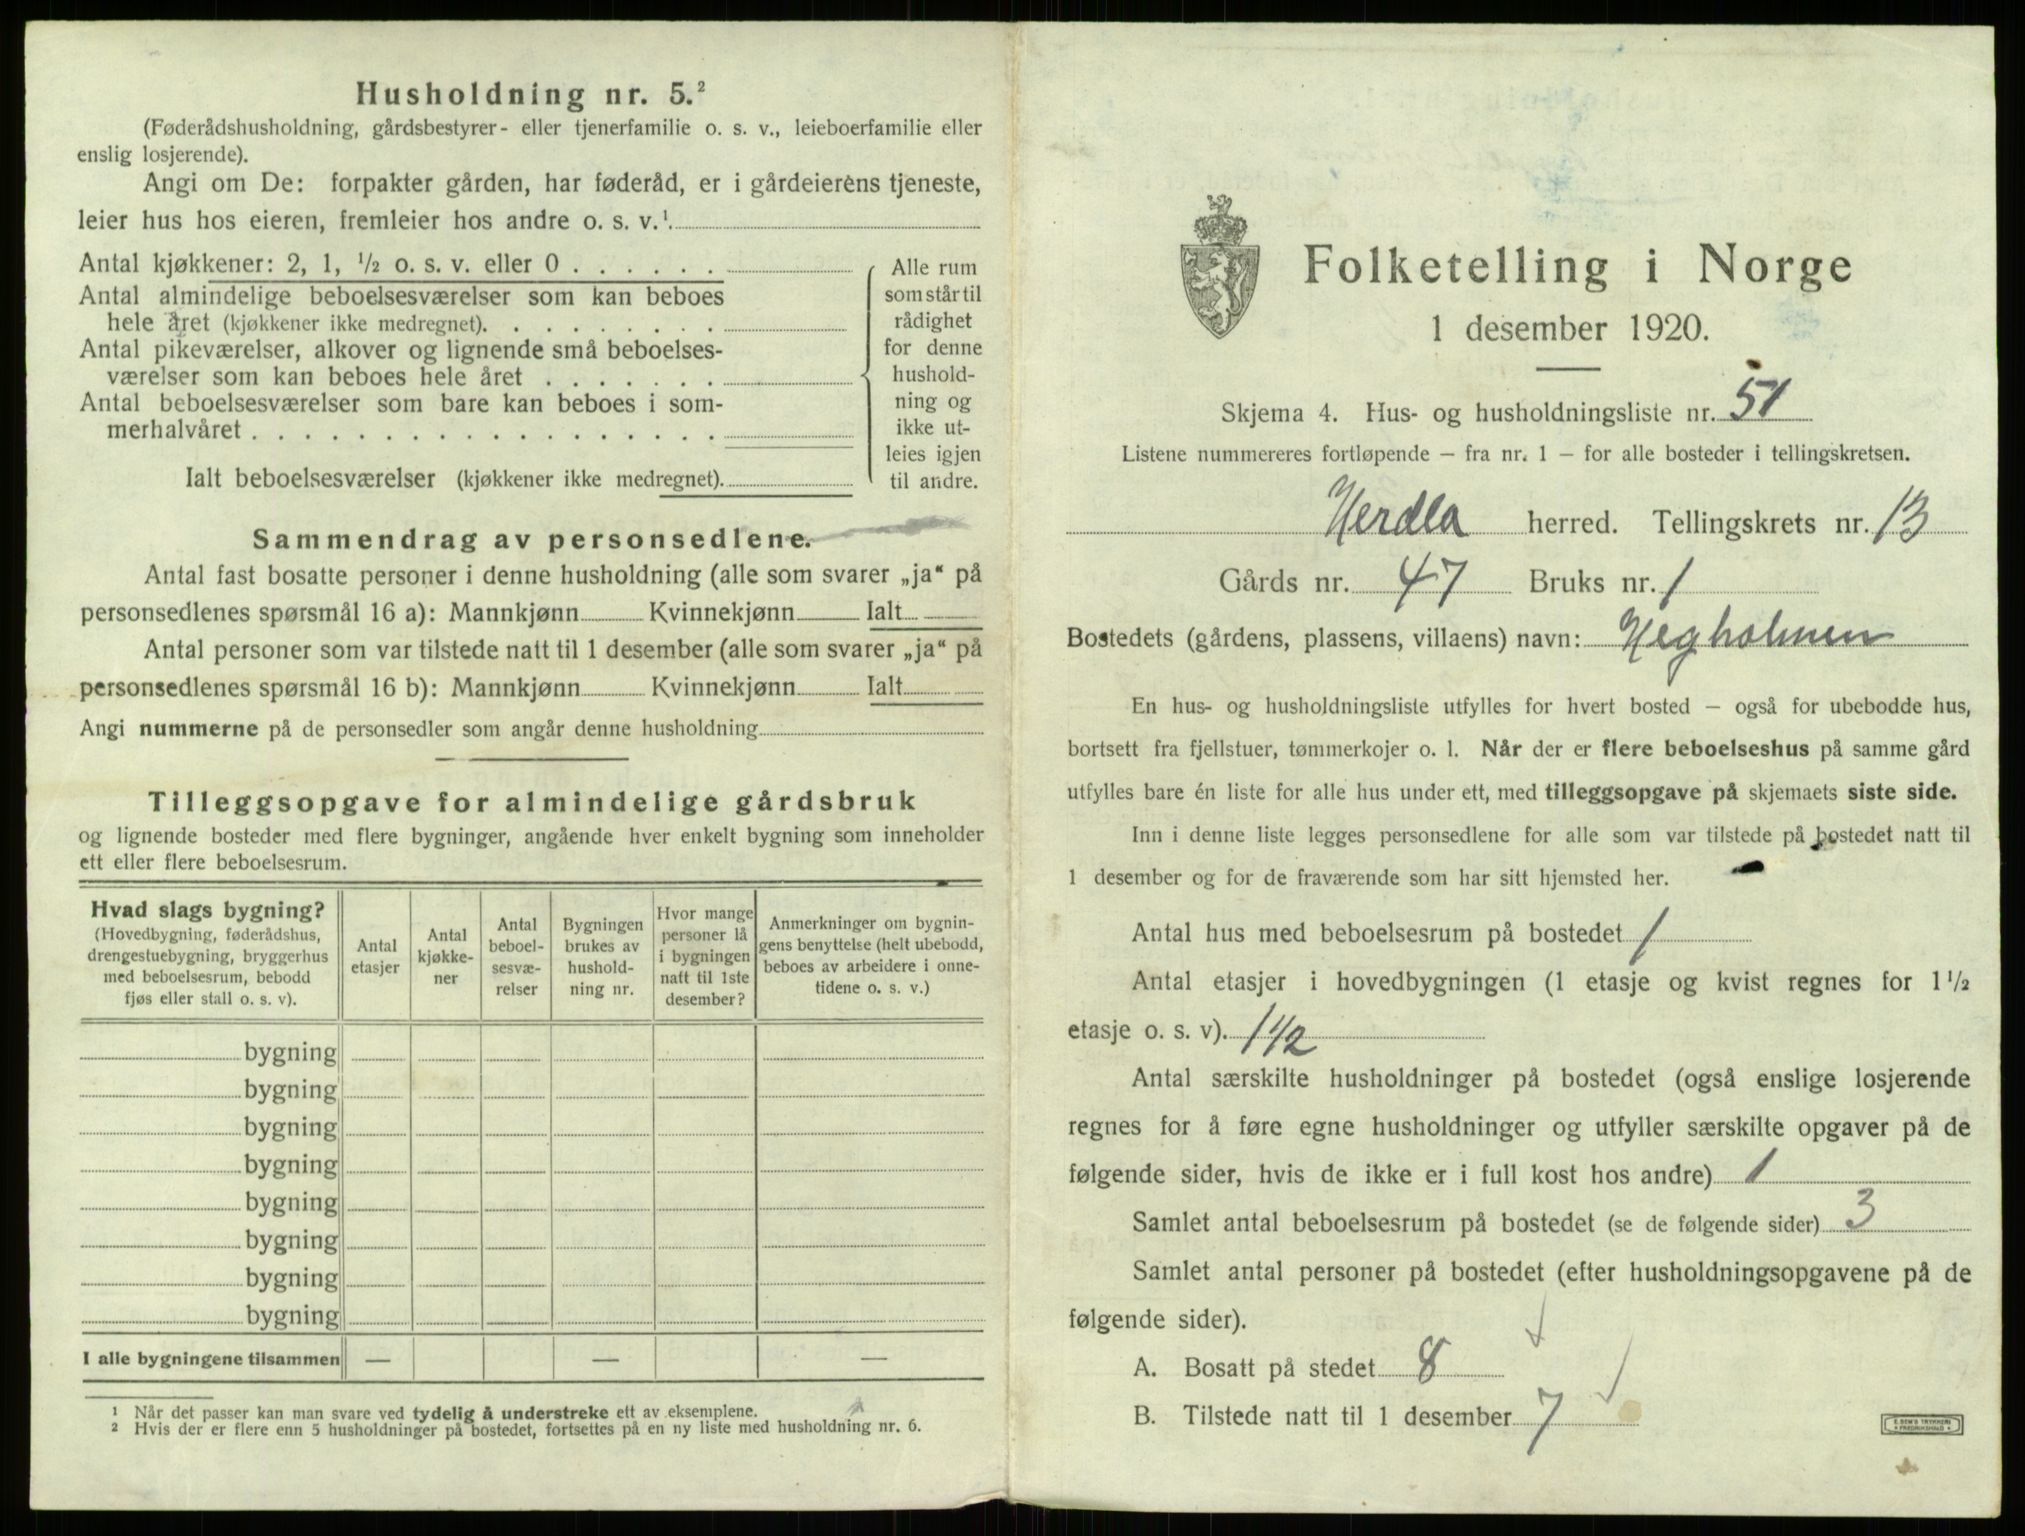 Husholdning nr. 5.²
(Føderådshusholdning, gårdsbestyrer- eller tjenerfamilie o. s. v., leieboerfamilie eller
enslig losjerende).
Angi om De: forpakter gården, har føderåd, er i gårdeierens tjeneste,
leier hus hos eieren, fremleier hos andre o. s. v.¹
Antal kjøkkener: 2, 1, ½ o. s. v. eller 0 . . . . . .
Antal almindelige beboelsesværelser som kan beboes
hele året (kjøkkener ikke medregnet). . . . . . . . .
Antal pikeværelser, alkover og lignende små beboelses-
værelser som kan beboes hele året . . . . . . .
Antal beboelsesværelser som bare kan beboes i som-
merhalvåret . . . . . . . . . . . . . . . . . .
Ialt beboelsesværelser (kjøkkener ikke medregnet).
Alle rum
som står til
rådighet
for denne
hushold-
ning og
ikke ut-
leies igjen
til andre.
Sammendrag av personsedlene.
Antal fast bosatte personer i denne husholdning (alle som svarer „ja“ på
personsedlenes spørsmål 16 a): Mannkjønn Kvinnekjønn Ialt
Antal personer som var tilstede natt til 1 desember (alle som svarer „ja“ på
personsedlenes spørsmål 16 b): Mannkjønn Kvinnekjønn Ialt
Angi nummerne på de personsedler som angår denne husholdning
Tilleggsopgave for almindelige gårdsbruk
og lignende bosteder med flere bygninger, angående hver enkelt bygning som inneholder
ett eller flere beboelsesrum.
Hvad slags bygning?
(Hovedbygning, føderådshus,
drengestuebygning, bryggerhus
med beboelsesrum, bebodd
fjøs eller stall o. s. v).
Antal
etasjer
Antal
kjøkke-
ner
Antal
beboel-
sesvæ-
relser
Bygningen
brukes av
hushold-
ning nr.
Hvor mange
personer lå
i bygningen
natt til 1ste
desember?
Anmerkninger om bygnin-
gens benyttelse (helt ubebodd,
beboes av arbeidere i onne-
tidene o. s. v.)
bygning
bygning
bygning
bygning
bygning
bygning
bygning
bygning
I alle bygningene tilsammen — — —
¹ Når det passer kan man svare ved tydelig å understreke ett av eksemplene.
² Hvis der er flere enn 5 husholdninger på bostedet, fortsettes på en ny liste med husholdning nr. 6.
Folketelling i Norge
1 desember 1920.
Skjema 4. Hus- og husholdningsliste nr. 51
Listene nummereres fortløpende — fra nr. 1 — for alle bosteder i tellingskretsen.
Herdla herred. Tellingskrets nr. 13
Gårds nr. 47 Bruks nr. 1
Bostedets (gårdens, plassens, villaens) navn: Hegholmen
En hus- og husholdningsliste utfylles for hvert bosted — også for ubebodde hus,
bortsett fra fjellstuer, tømmerkojer o. l. Når der er flere beboelseshus på samme gård
utfylles bare én liste for alle hus under ett, med tilleggsopgave på skjemaets siste side.
Inn i denne liste legges personsedlene for alle som var tilstede på bostedet natt til
1 desember og for de fraværende som har sitt hjemsted her.
Antal hus med beboelsesrum på bostedet 1
Antal etasjer i hovedbygningen (1 etasje og kvist regnes for 1 ½
etasje o. s. v). 1 1/2
Antal særskilte husholdninger på bostedet (også enslige losjerende
regnes for å føre egne husholdninger og utfyller særskilte opgaver på de
følgende sider, hvis de ikke er i full kost hos andre) 1
Samlet antal beboelsesrum på bostedet (se de følgende sider) 3
Samlet antal personer på bostedet (efter husholdningsopgavene på de
følgende sider).
A. Bosatt på stedet 8
B. Tilstede natt til 1 desember 7
E. SEM'S TRYKKERI
FREDRIKSHALD